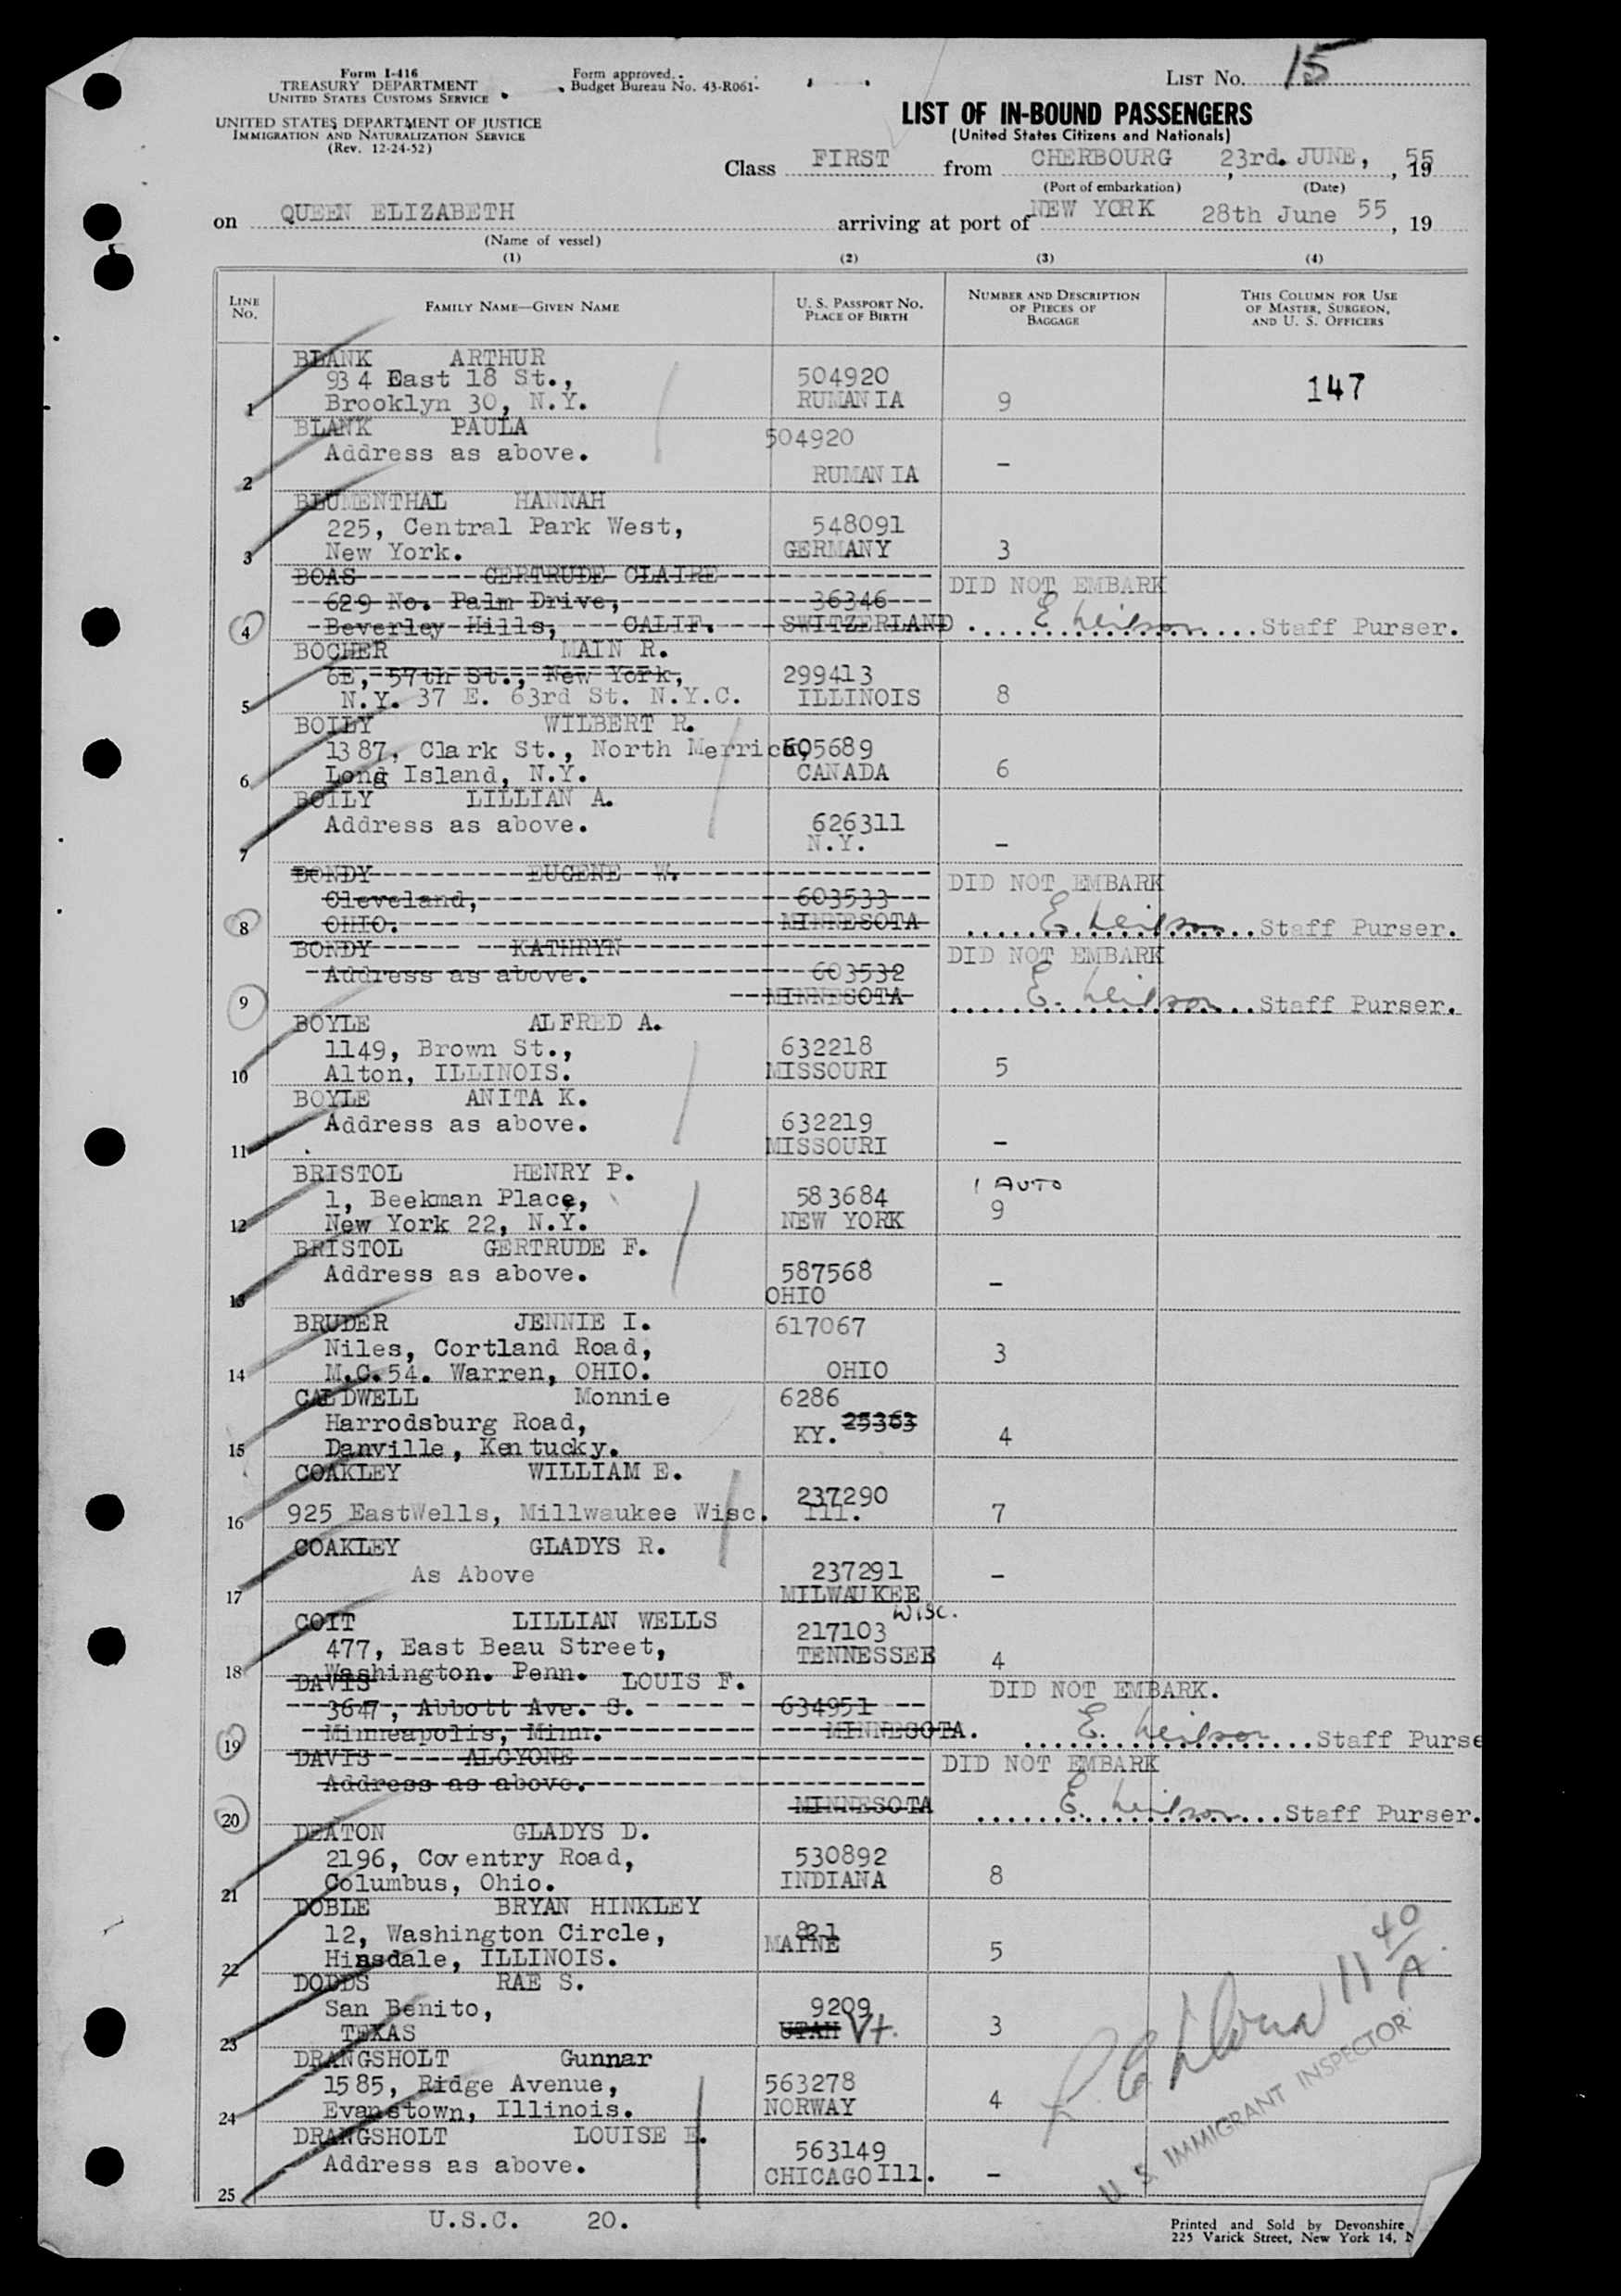 Form I-416
TREASURY DEPARTMENT
UNITED STATES CUSTOMS SERVICE
UNITED STATES DEPARTMENT OF JUSTICE
IMMIGRATION AND NATURALIZATION SERVICE
(Rev. 12-24-52)
Form approved.
Budget Bureau No. 43-R061-
LIST No. 15
LIST OF IN-BOUND PASSENGERS
(United States Citizens and Nationals)
Class FIRST from CHERBOURG, 23rd. JUNE, 1955
(Port of embarkation) (Date)
on QUEEN ELIZABETH arriving at port of NEW YORK 28th June 55, 19
(Name of vessel)
(1) (2) (3) (4)
LINE No. FAMILY NAME—GIVEN NAME U. S. PASSPORT No. PLACE OF BIRTH NUMBER AND DESCRIPTION OF PIECES OF BAGGAGE THIS COLUMN FOR USE OF MASTER, SURGEON, AND U. S. OFFICERS
BLANK ARTHUR
934 East 18 St., 504920 147
1 Brooklyn 30, N.Y. RUMANIA 9
BLANK PAULA 504920
Address as above. -
2 RUMANIA
BLUMENTHAL HANNAH
225, Central Park West, 548091
3 New York. GERMANY 3
BOAS GERTRUDE CLAIRE DID NOT EMBARK
629 No. Palm Drive, 36346
4 Beverley Hills, CALIF. SWITZERLAND E Neilson Staff Purser.
BOCHER MAIN R.
6E, 57th St., New York, 299413
5 N.Y. 37 E. 63rd St. N.Y.C. ILLINOIS 8
BOILY WILBERT R.
1387, Clark St., North Merrick, 605689
6 Long Island, N.Y. CANADA 6
BOILY LILLIAN A.
Address as above. 626311
7 N.Y. -
BONDY EUGENE W. DID NOT EMBARK
Cleveland, 603533
8 OHIO. MINNESOTA E Neilson Staff Purser.
BONDY KATHRYN DID NOT EMBARK
Address as above. 603532
9 MINNESOTA E. Neilson Staff Purser.
BOYLE ALFRED A.
1149, Brown St., 632218
10 Alton, ILLINOIS. MISSOURI 5
BOYLE ANITA K.
Address as above. 632219
11 MISSOURI -
BRISTOL HENRY P. 1 AUTO
1, Beekman Place, 583684
12 New York 22, N.Y. NEW YORK 9
BRISTOL GERTRUDE F.
Address as above. 587568
13 OHIO -
BRUDER JENNIE I. 617067
Niles, Cortland Road, 3
14 M.C.54. Warren, OHIO. OHIO
CALDWELL Monnie 6286
Harrodsburg Road, 25363
15 Danville, Kentucky. KY. 4
COAKLEY WILLIAM E.
237290
16 925 EastWells, Millwaukee Wisc. Ill. 7
COAKLEY GLADYS R.
As Above 237291 -
17 MILWAUKEE Wisc.
COIT LILLIAN WELLS 217103
477, East Beau Street, TENNESSEE 4
18 Washington. Penn.
DAVIS LOUIS F. DID NOT EMBARK.
3647, Abbott Ave. S. 634951
19 Minneapolis, Minn. MINNESOTA. E. Neilson Staff Purse
DAVIS ALCYONE DID NOT EMBARK
Address as above.
20 MINNESOTA E. Neilson Staff Purser.
DEATON GLADYS D.
2196, Coventry Road, 530892
21 Columbus, Ohio. INDIANA 8
DOBLE BRYAN HINKLEY
12, Washington Circle, 821
22 Hinsdale, ILLINOIS. MAINE 5
DODDS RAE S.
San Benito, 9209
23 TEXAS UTAH Vt. 3
DRANGSHOLT Gunnar
1585, Ridge Avenue, 563278
24 Evanstown, Illinois. NORWAY 4
DRANGSHOLT LOUISE E.
Address as above. 563149
25 CHICAGO Ill. -
11 40/A
U. S. IMMIGRANT INSPECTOR
U.S.C. 20.
Printed and Sold by Devonshire
225 Varick Street, New York 14, N